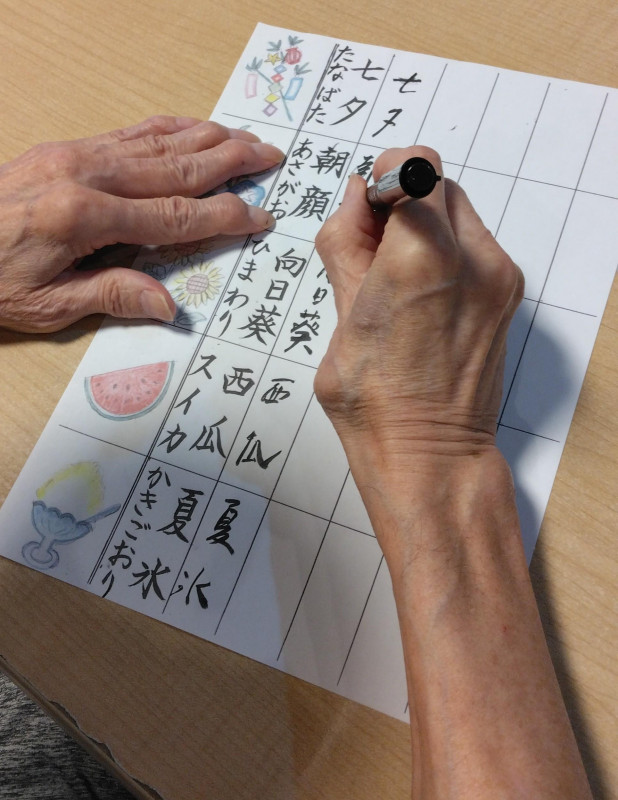 たなばた 七夕 七夕
あさがお 朝顔
ひまわり 向日葵 日葵
スイカ 西瓜 西瓜
かきごおり 夏氷 夏氷